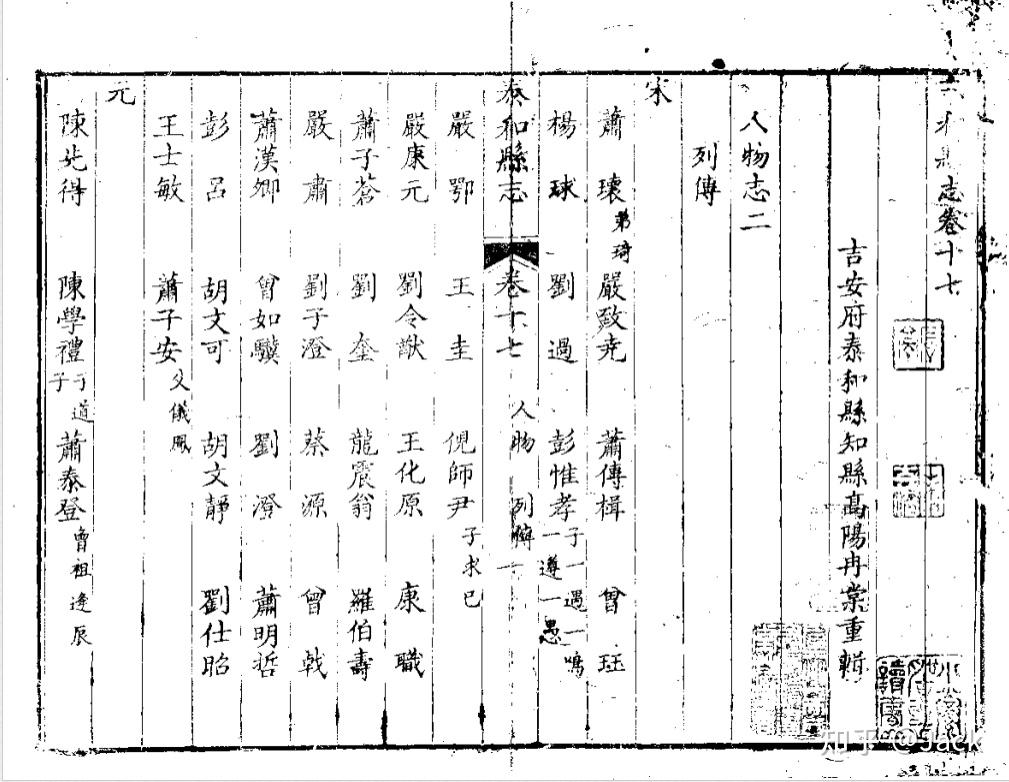 志卷十七
吉安府泰和縣知縣高陽冉棠重輯
人物志二
列傳
宋
蕭 瓌 弟琦 嚴致堯 蕭傳楫 曾 玨
楊 球 劉 過 彭惟孝 子一過一鳴一遵一愚
泰和縣志 卷十七 人物 列傳 一
嚴 鄂 王 圭 倪師尹 子求己
嚴康元 劉令猷 王化原 康 職
蕭子蒼 劉 奎 龍震翁 羅伯壽
嚴 肅 劉子澄 蔡 源 曾 戟
蕭漢卿 曾如驥 劉 澄 蕭明哲
彭 呂 胡文可 胡文靜 劉仕昭
王士敏 蕭子安 父儀鳳
元
陳先得 陳學禮 子于道 蕭泰登 曾祖逢辰
知乎 @Jack